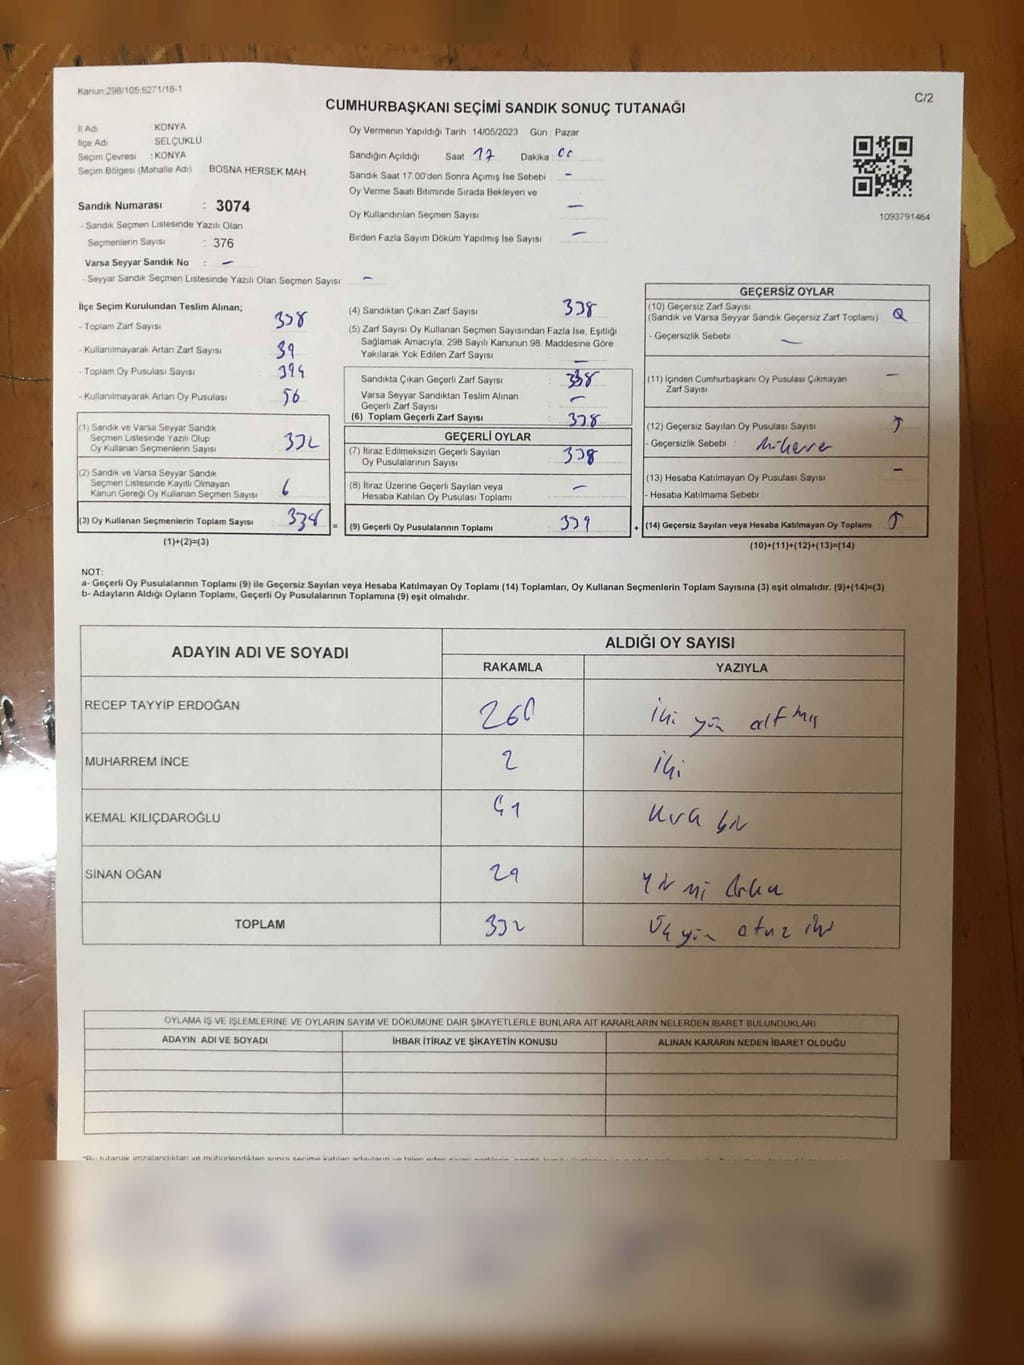 Kanun:298/105;6271/18-1
C/2
CUMHURBAŞKANI SEÇİMİ SANDIK SONUÇ TUTANAĞI
İl Adı KONYA
İlçe Adı SELÇUKLU
Seçim Çevresi : KONYA
Seçim Bölgesi (Mahalle Adı) BOSNA HERSEK MAH.
Sandık Numarası : 3074
- Sandık Seçmen Listesinde Yazılı Olan
Seçmenlerin Sayısı : 376
Varsa Seyyar Sandık No : –
- Seyyar Sandık Seçmen Listesinde Yazılı Olan Seçmen Sayısı: –
Oy Vermenin Yapıldığı Tarih 14/05/2023 Gün : Pazar
Sandığın Açıldığı Saat 17 Dakika 00
Sandık Saat 17.00'den Sonra Açımış İse Sebebi –
Oy Verme Saati Bitiminde Sırada Bekleyen ve
Oy Kullandırılan Seçmen Sayısı –
Birden Fazla Sayım Döküm Yapılmış İse Sayısı –
1093791464
İlçe Seçim Kurulundan Teslim Alınan;
- Toplam Zarf Sayısı
- Kullanılmayarak Artan Zarf Sayısı 39
- Toplam Oy Pusulası Sayısı 394
- Kullanılmayarak Artan Oy Pusulası 56
(1) Sandık ve Varsa Seyyar Sandık
Seçmen Listesinde Yazılı Olup
Oy Kullanan Seçmenlerin Sayısı 332
(2) Sandık ve Varsa Seyyar Sandık
Seçmen Listesinde Kayıtlı Olmayan
Kanun Gereği Oy Kullanan Seçmen Sayısı 6
(3) Oy Kullanan Seçmenlerin Toplam Sayısı 338 =
(1)+(2)=(3)
(4) Sandıktan Çıkan Zarf Sayısı 338
(5) Zarf Sayısı Oy Kullanan Seçmen Sayısından Fazla İse, Eşitliği
Sağlamak Amacıyla, 298 Sayılı Kanunun 98. Maddesine Göre
Yakılarak Yok Edilen Zarf Sayısı –
Sandıkta Çıkan Geçerli Zarf Sayısı 338
Varsa Seyyar Sandıktan Teslim Alınan
Geçerli Zarf Sayısı –
(6) Toplam Geçerli Zarf Sayısı 338
GEÇERLİ OYLAR
(7) İtiraz Edilmeksizin Geçerli Sayılan
Oy Pusulalarının Sayısı 338
(8) İtiraz Üzerine Geçerli Sayılan veya
Hesaba Katılan Oy Pusulası Toplamı –
(9) Geçerli Oy Pusulalarının Toplamı
GEÇERSİZ OYLAR
(10) Geçersiz Zarf Sayısı
(Sandık ve Varsa Seyyar Sandık Geçersiz Zarf Toplamı)
- Geçersizlik Sebebi : –
(11) İçinden Cumhurbaşkanı Oy Pusulası Çıkmayan
Zarf Sayısı –
(12) Geçersiz Sayılan Oy Pusulası Sayısı
- Geçersizlik Sebebi :
(13) Hesaba Katılmayan Oy Pusulası Sayısı –
- Hesaba Katılmama Sebebi :
(14) Geçersiz Sayılan veya Hesaba Katılmayan Oy Toplamı
(10)+(11)+(12)+(13)=(14)
NOT:
a- Geçerli Oy Pusulalarının Toplamı (9) ile Geçersiz Sayılan veya Hesaba Katılmayan Oy Toplamı (14) Toplamları, Oy Kullanan Seçmenlerin Toplam Sayısına (3) eşit olmalıdır. (9)+(14)=(3)
b- Adayların Aldığı Oyların Toplamı, Geçerli Oy Pusulalarının Toplamına (9) eşit olmalıdır.
ADAYIN ADI VE SOYADI ALDIĞI OY SAYISI
RAKAMLA YAZIYLA
RECEP TAYYİP ERDOĞAN 260 İki yüz altmış
MUHARREM İNCE 2 İki
KEMAL KILIÇDAROĞLU 41 kırk bir
SİNAN OĞAN 29 yirmi dokuz
TOPLAM 332 Üç yüz otuz iki
OYLAMA İŞ VE İŞLEMLERİNE VE OYLARIN SAYIM VE DÖKÜMÜNE DAİR ŞİKAYETLERLE BUNLARA AİT KARARLARIN NELERDEN İBARET BULUNDUKLARI
ADAYIN ADI VE SOYADI İHBAR İTİRAZ VE ŞİKAYETİN KONUSU ALINAN KARARIN NEDEN İBARET OLDUĞU